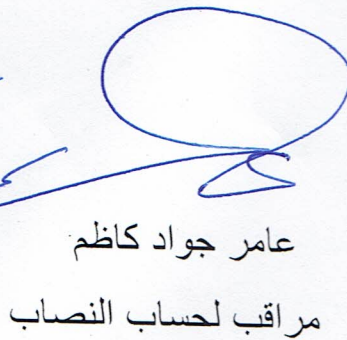 عامر جواد كاظم
مراقب لحساب النصاب